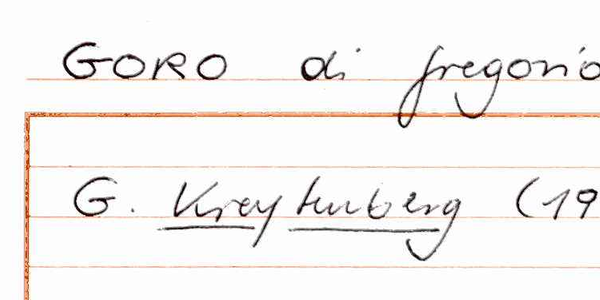 GORO di gregorio
G. Kreytenberg (19